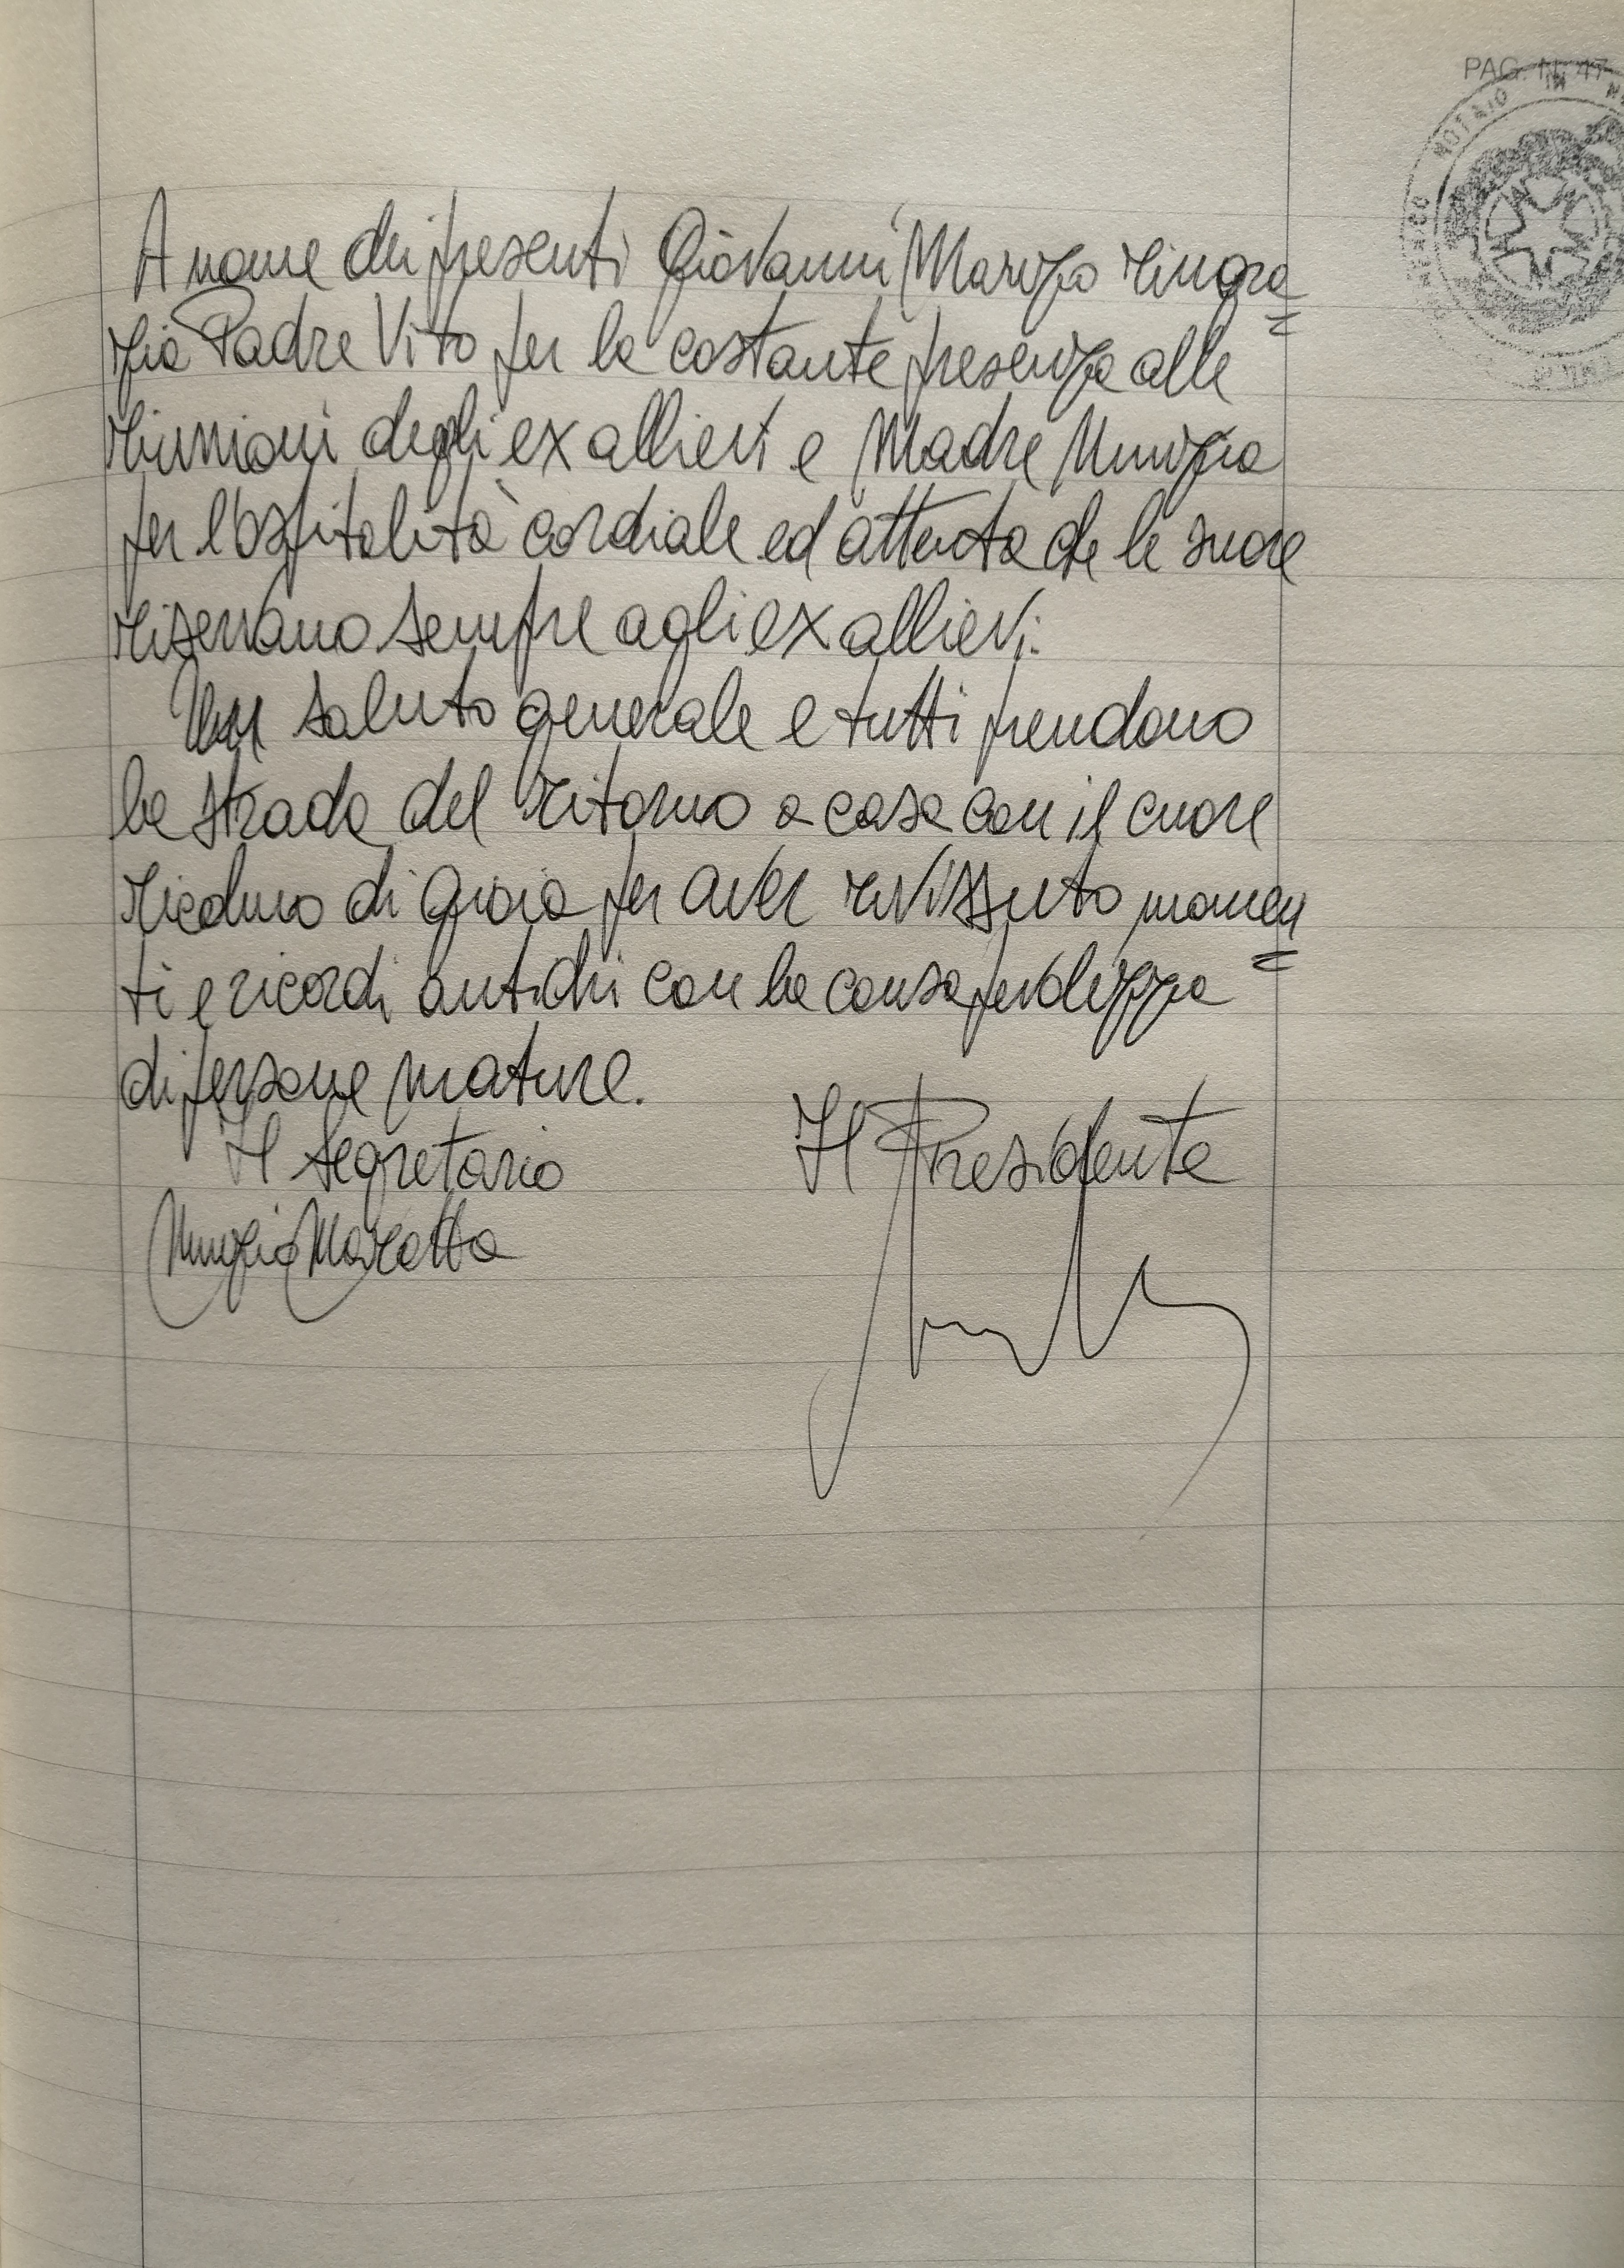 PAG. N. 47
NOTAIO IN
A nome dei presenti Giovanni Marizzo ringra=
zia Padre Vito per la costante presenza alle
riunioni degli ex allievi e Madre Nunzia
per l'ospitalità cordiale ed attenta che le suore
riservano sempre agli ex allievi.
Un saluto generale e tutti prendono
la strada del ritorno a casa con il cuore
ricolmo di gioia per aver rivissuto momen=
ti e ricordi antichi con la consapevolezza
di persone mature.
Il Segretario Il Presidente
Nunzia Marotta